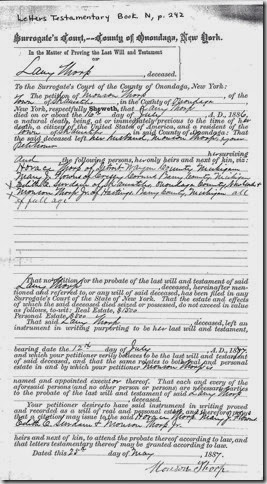 Letters Testamentary Book N, p. 242
Surrogate's Court,—County of Onondaga, New York.
In the Matter of Proving the Last Will and Testament
OF
Lany Thorp, deceased.
To the Surrogate's Court of the County of Onondaga, New York:
The Petition of Monson Thorp, of the
Town of, in the County of Onondaga
New York, respectfully Sheweth, that Lany Thorp
died on or about the 16th day of July A. D., 1886,
a natural death, being at, or immediately previous to the time of her
death, a citizen of the United States, and a resident of the
Town of in said County of Onondaga: That
the said deceased left her husband, Monson Thorp, your
Petitioner
her surviving
And the following persons, her only heirs and next of kin, viz:
Thorp of Detroit Wayne County Michigan
Mary J. of Corners County Michigan
Edith E. of Onondaga County New York &
Monson Thorp Jr. of Hastings, Barry County, Michigan all
of full age
That no petition for the probate of the last will and testament of said
Lany Thorp, deceased, hereafter mentioned
and referred to, or any will of said deceased, has been filed in any
Surrogate's Court of the State of New York. That the estate and effects
of which the said deceased died seized or possessed, do not exceed in value
as follows, to wit: Real Estate, $1500
Personal Estate, $200
That said Lany Thorp deceased, left an
instrument in writing purporting to be her last will and testament,
bearing date the 12th day of July A. D., 1877,
and which your petitioner verily believes to be the last will and testament
of said deceased, and that the same relates to both real and personal
estate in and by which your petitioner Monson Thorp is
named and appointed executor thereof. That each and every of the
aforesaid persons and no other person or persons, are necessary parties
to the probate of the last will and testament of said Lany Thorp
deceased.
Your petitioner desires to have said instrument in writing proved
and recorded as a will of real and personal estate, and therefore prays
that a citation may issue to the said Thorp, Mary J.
Edith E. & Monson Thorp Jr.
heirs and next of kin, to attend the probate thereof according to law, and
that letters testamentary thereof may be granted according to law.
Dated this 28th day of May, 1887.
Monson Thorp